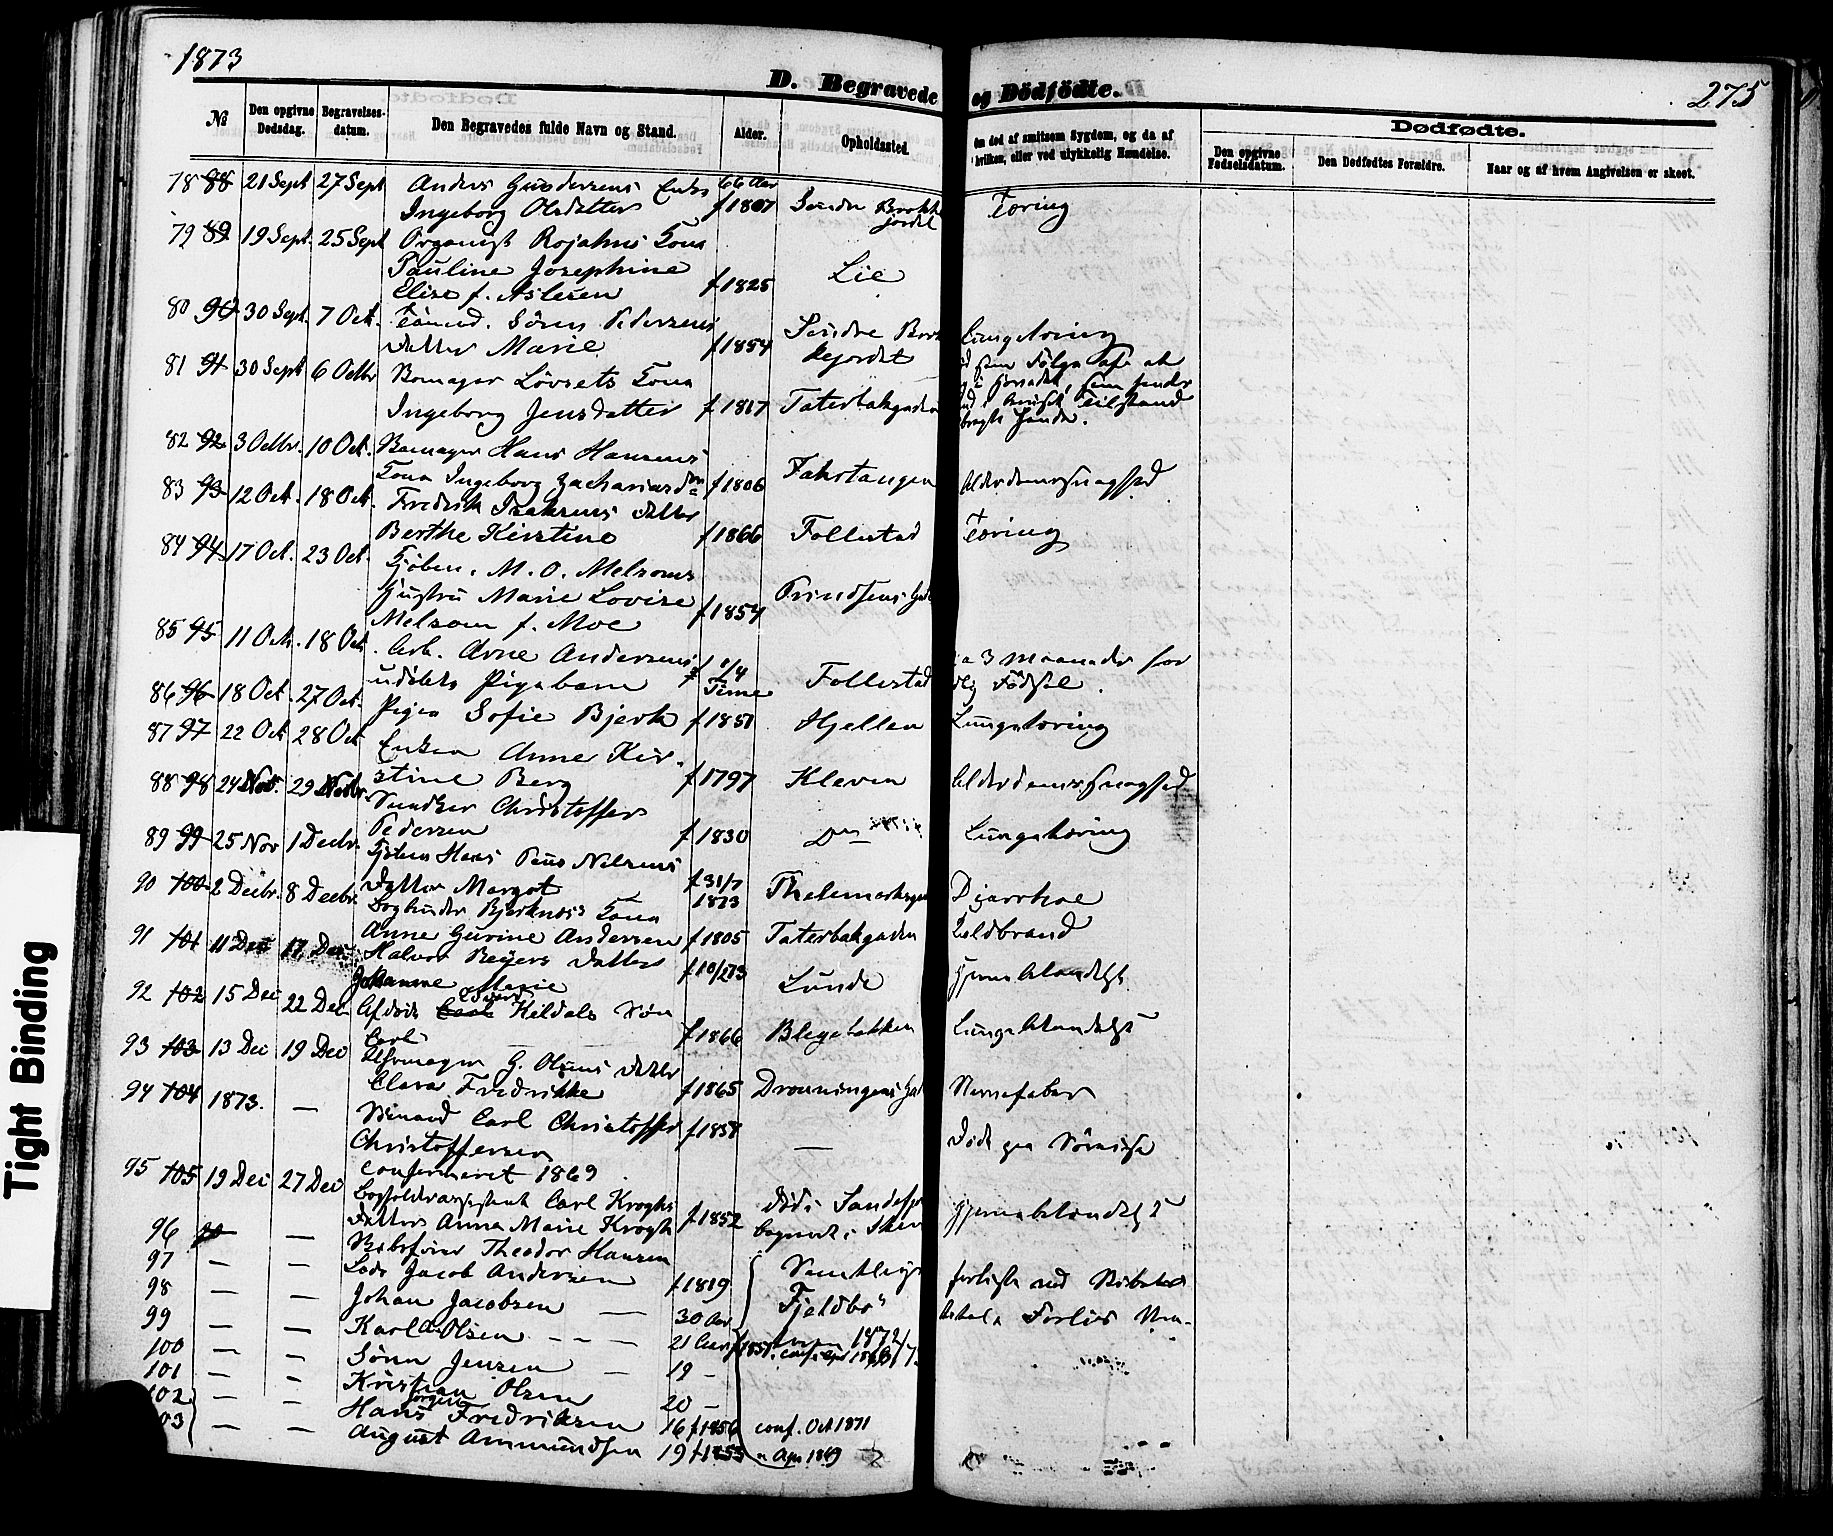 1873
D. Begravede og Dödfödte.
275
№
Den opgivne Dødsdag.
Begravelses-datum.
Den Begravedes fulde Navn og Stand.
Alder.
Opholdssted.
Om død af smitsom Sygdom, og da af hvilken, eller ved ulykkelig Hændelse.
Dødfødte.
Den opgivne Fødselsdatum.
Den Dødfødtes Forældre.
Naar og af hvem Angivelsen er skeet.
78 88 21 Sept 27 Sept Anders Gundersens Enke 66 Aar
Ingeborg Olsdatter f 1807 Søndre Brokke Tæring
jordet
79 89 19 Sept. 25 Sept Organist Rojahns Kona
Pauline Josephine
Elise f. Aslesen f 1825 Lie
80 90 30 Sept. 7 Oct. Tømmd. Sörens Pedersens
Datter Marie f 1854 Søndre Brok Lungetæring
kejordet
81 91 30 Sept 6 Octbr Bomager Lövsets Kona
Ingeborg Jensdatter f 1817 Taterbakgaden
som Følge af at
Tilstand
82 92 3 Octbr. 10 Oct. Bomager Hans Hansens
Kona Ingeborg Zachariasdtr f 1806 Fahrtangen Alderdomssvaghed
83 93 12 Oct. 18 Oct. Fredrik Isaksens Datter
Berthe Kirstine f 1866 Follestad Tæring
84 94 17 Oct. 23 Oct. Kjöbm. M. O. Melsoms
Hustru Marie Lovise
Melsom f. Moe f 1854 Prindsens Gade
85 95 11 Oct. 18 Oct Arb. Arne Andersens 1/4
udöbte Pigebarn Time Follestad 3 Maaneder for
Födsel.
86 96 18 Oct. 27 Oct. Pigen Sofie Bjerk f 1851 Hjellen Lungetæring
87 97 22 Oct 28 Oct Enken Anne Kir-
stine Berg f 1797 Kleven Alderdomssvaghed
88 98 24 Nov. 29 Novbr. Snedker Christoffer
Pedersen f 1830 Do Lungetæring
89 99 25 Nov 1 Decbr. Kjöbm Hans Peter Nilsens
Datter Margot f 31/7
1873 Thelemarksgaden Djarrhoe
90 100 2 Decbr. 8 Decbr. Bogbinder Bjerknæs' Kona
Anne Gurine Andersen f 1805 Taterbakgaden Koldbrand
91 101 11 Dec 17 Dec Halvor Beyers Datter
Johanne Marie f 10/2 73 Lunde Hjernebetændelse
92 102 15 Dec 22 Dec Afdöde Carl Kildals Sön
Carl f 1866 Blegebakken Lungebetændelse
93 103 13 Dec 19 Dec Uhrmager G. Olsens Datter
Clara Fredrikke f 1865 Dronningens Gade Nervefeber
94 104 1873. — Sömand Carl Christoffer f 1858
Christoffersen — Döde paa Söreise
confirmeret 1869
95 105 19 Dec 27 Dec Bogholderassistent Carl Kroghs
Datter Anna Marie Krogh f 1852 Död i Sandefjo Hjernebetændelse
begravet i Skien
96 — — Skibsförer Theodor Hansen
97 — — Lods Jacob Andersen f 1819 Samtlige forliste med Skibet
98 — — Johan Jacobsen — 30 Aar "Fjeldbo"
99 — — Karl Olsen - - - 21 Aar
100 — — Sören Jensen — 19 —
101 — — Kristian Olsen 20 —
102 — — Hans Jörgen Fredriksen 16 f 1856 conf. Oct 1871
103 — — August Ammundsen 19 f 1855 " Apr 1869
Tight Binding